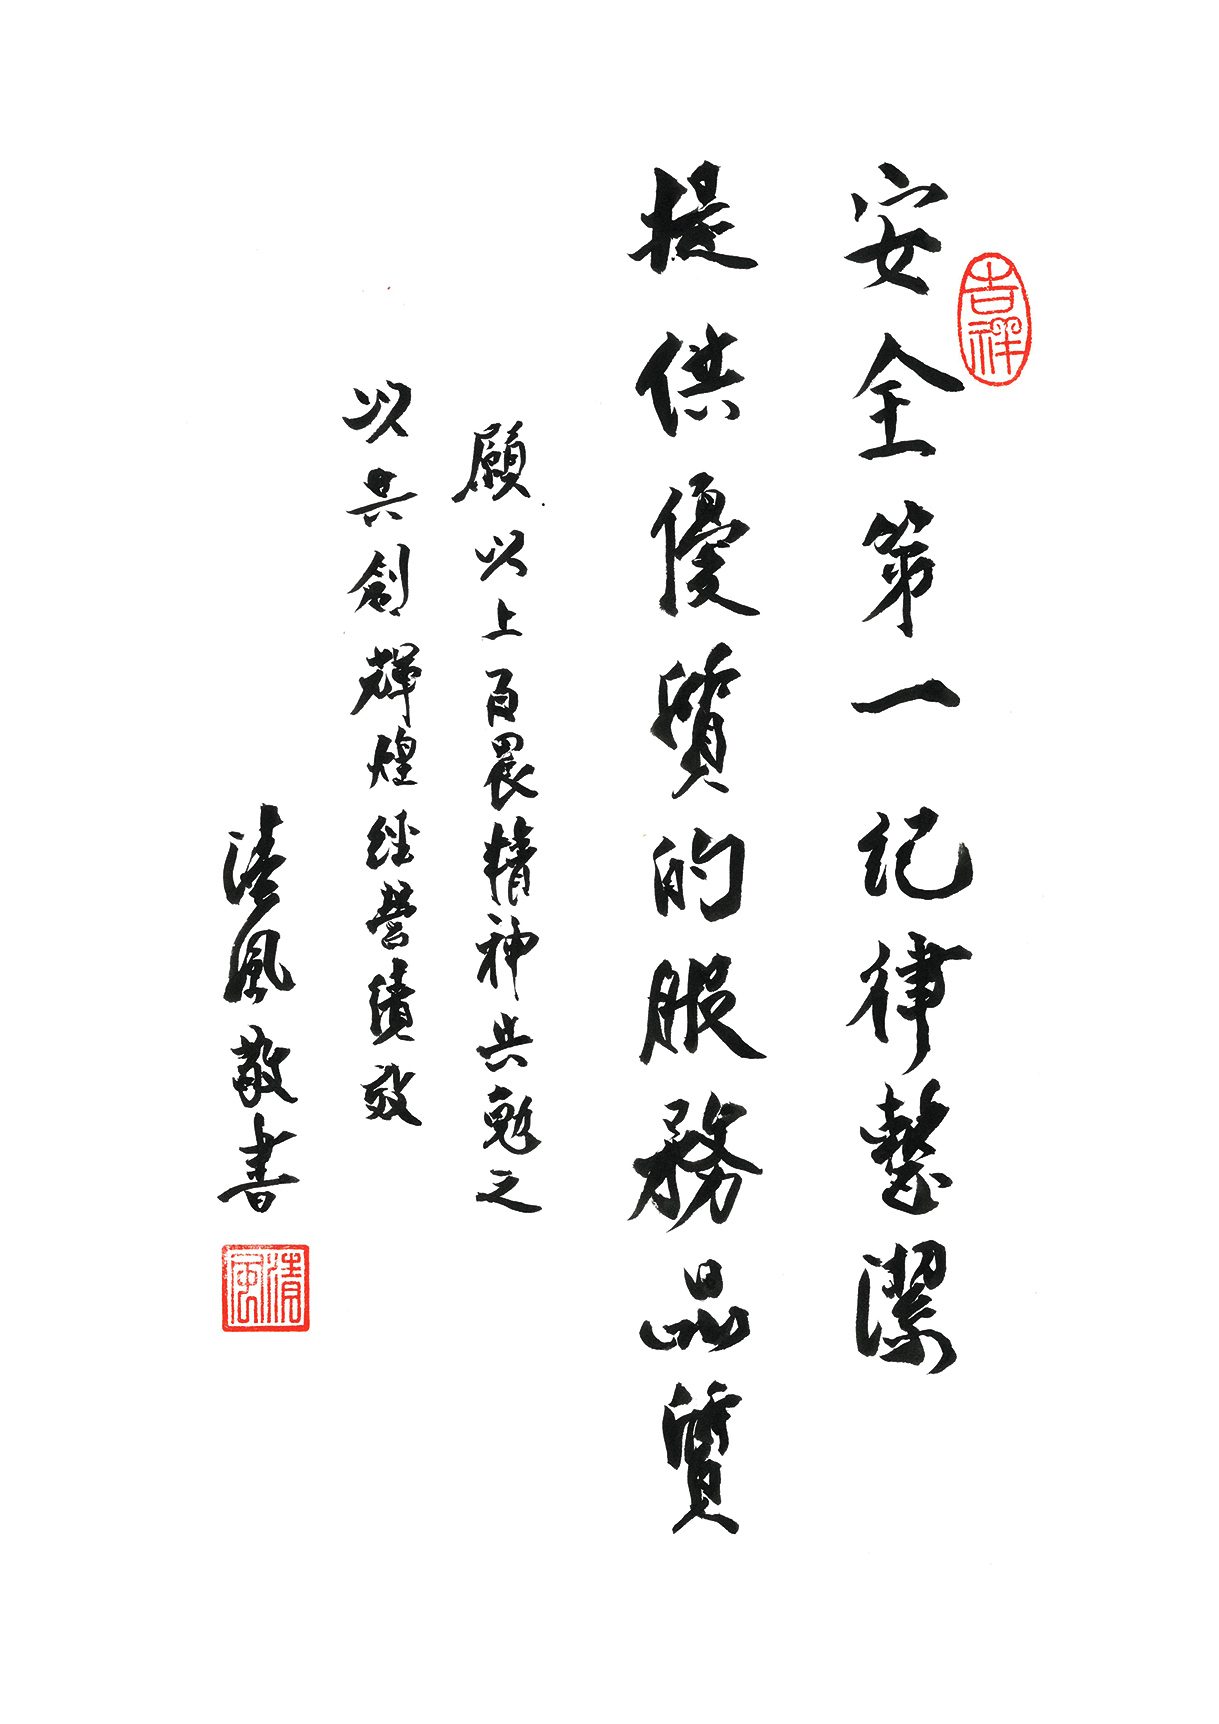 吉祥
安全第一紀律整潔
提供優質的服務品質
願以上百晨精神共勉之
以共創輝煌經營績效
清風敬書
清風